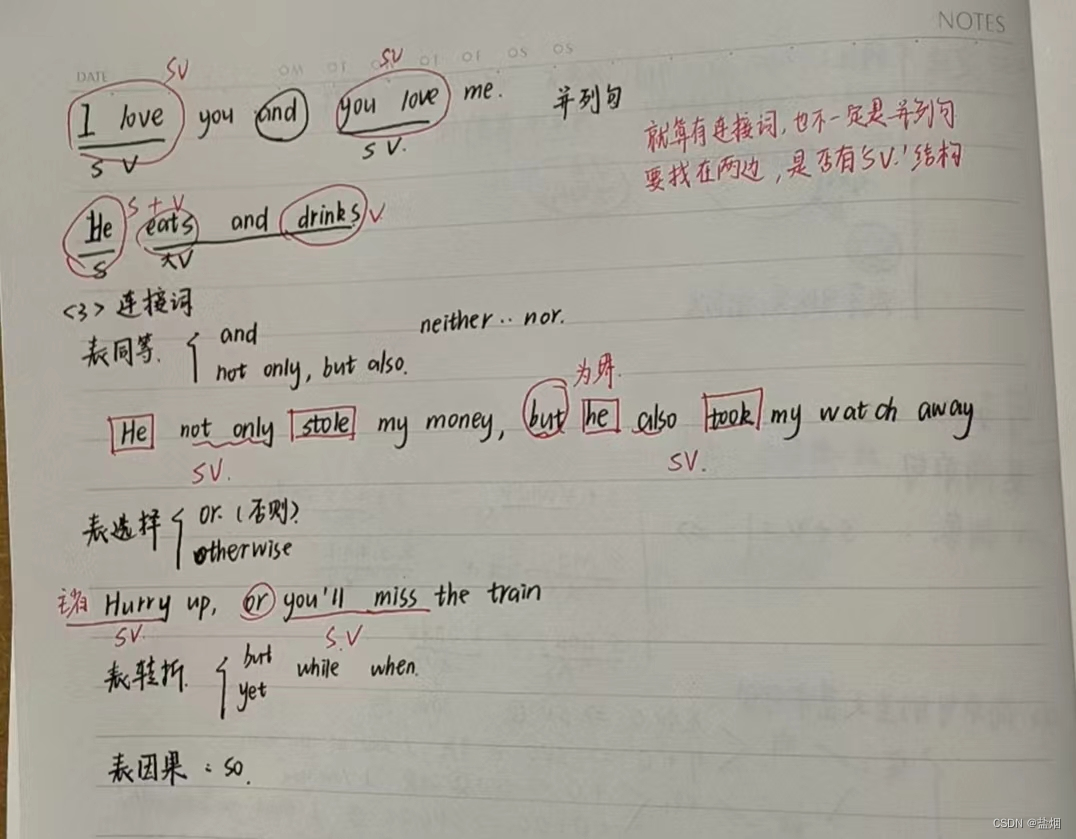 NOTES
DATE
SV SV
I love you and you love me. 并列句
S V S V.
就算有连接词,也不一定是并列句
要找在两边,是否有'S V.'结构
S + V
He eats and drinks V
S 大V
<3> 连接词
表同等. and neither.. nor.
not only, but also.
He not only stole my money, but he also took my watch away
SV. SV.
表选择 or. (否则)
otherwise
Hurry up, or you'll miss the train
SV. S.V
表转折. but while when.
yet
表因果 : so.
CSDN @盐烟